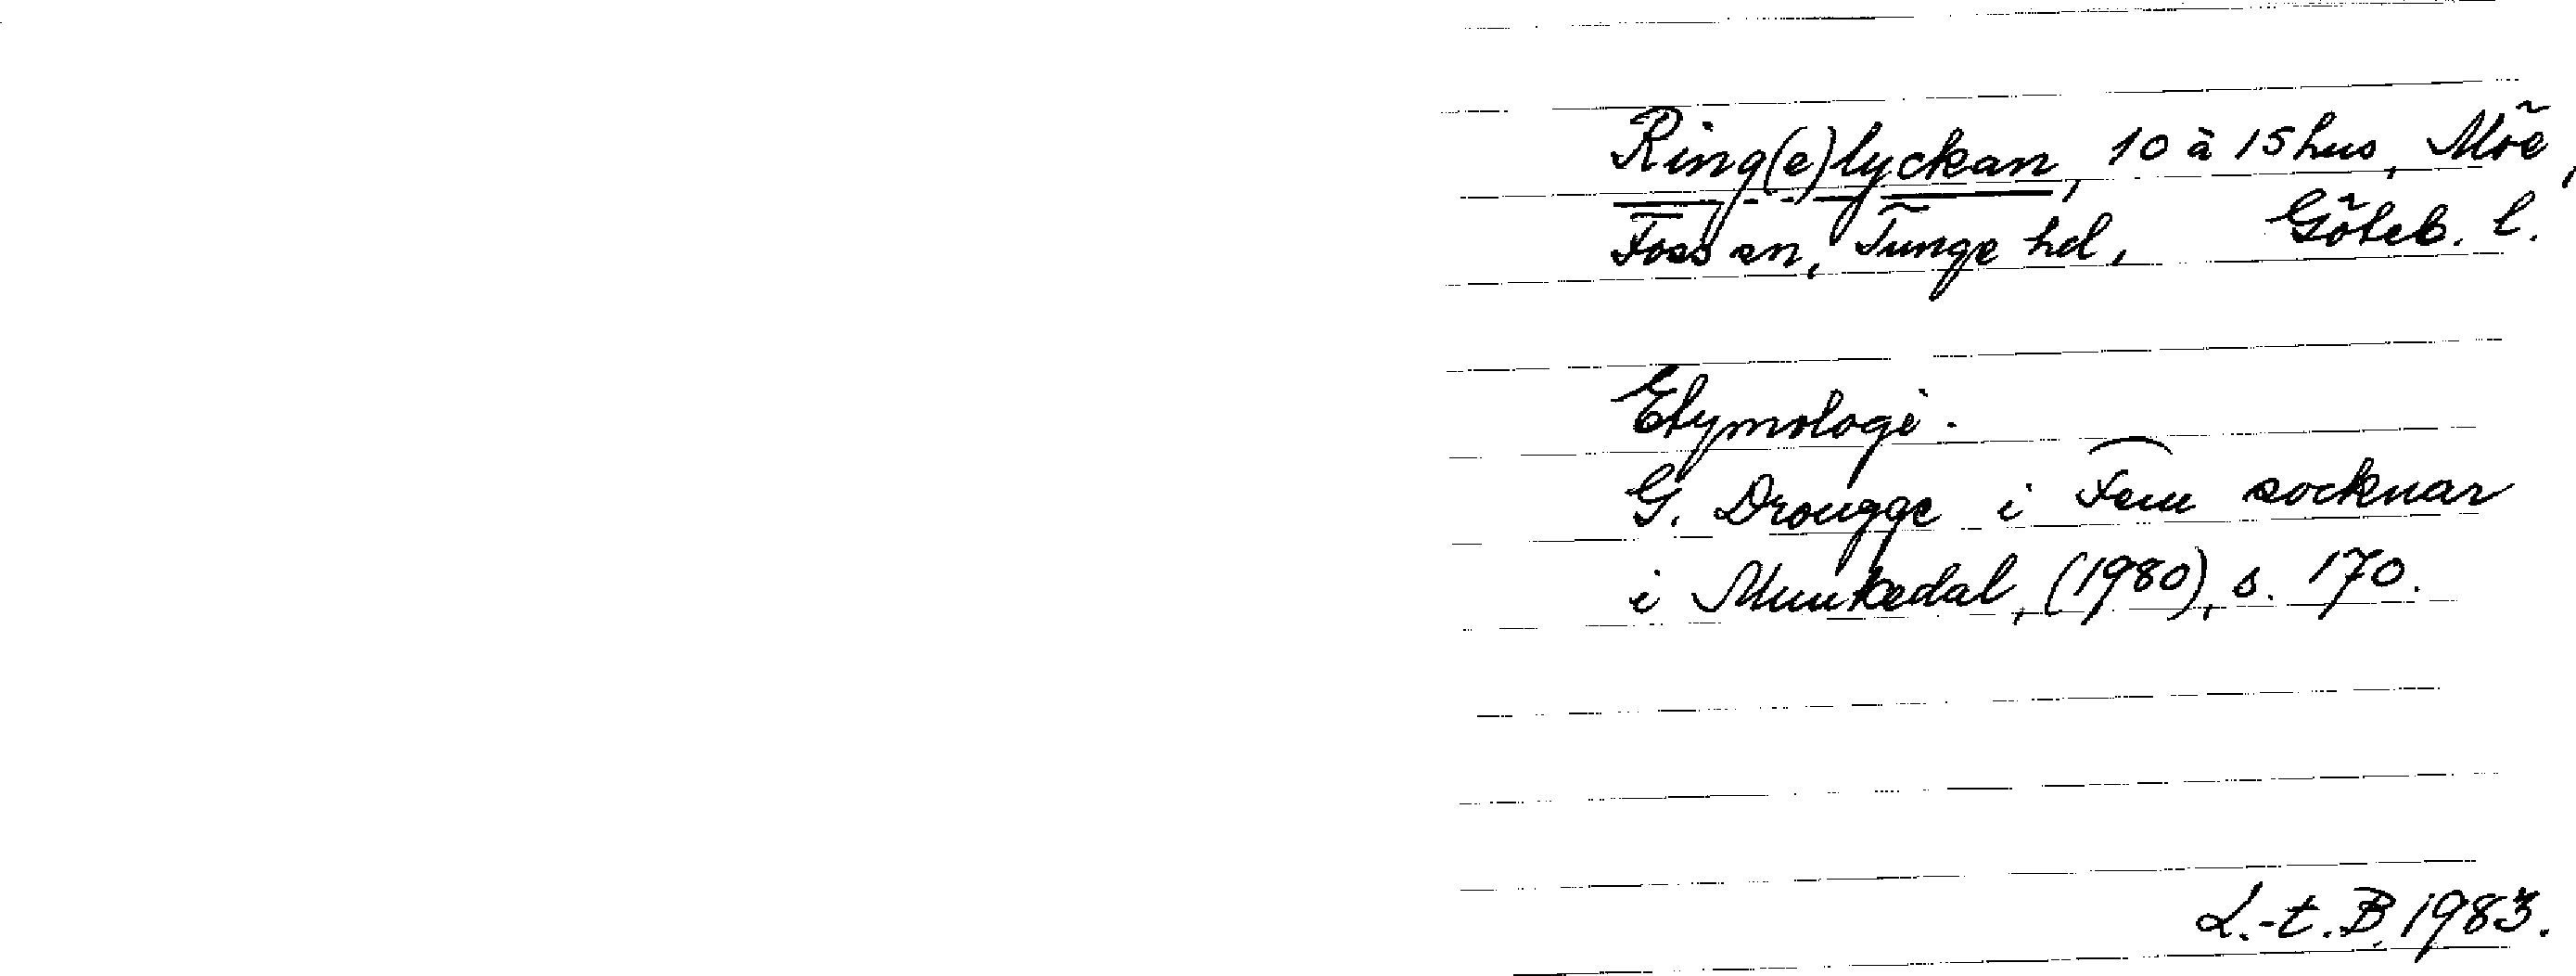 Ring(e)lyckan, 10 à 15 hus, Möe,
Foss sn, Tunge hd, Göteb. l.
Etymologi.
G. Drougge i Fem socknar
i Munkedal, (1980), s. 170.
L.-t. B. 1983.